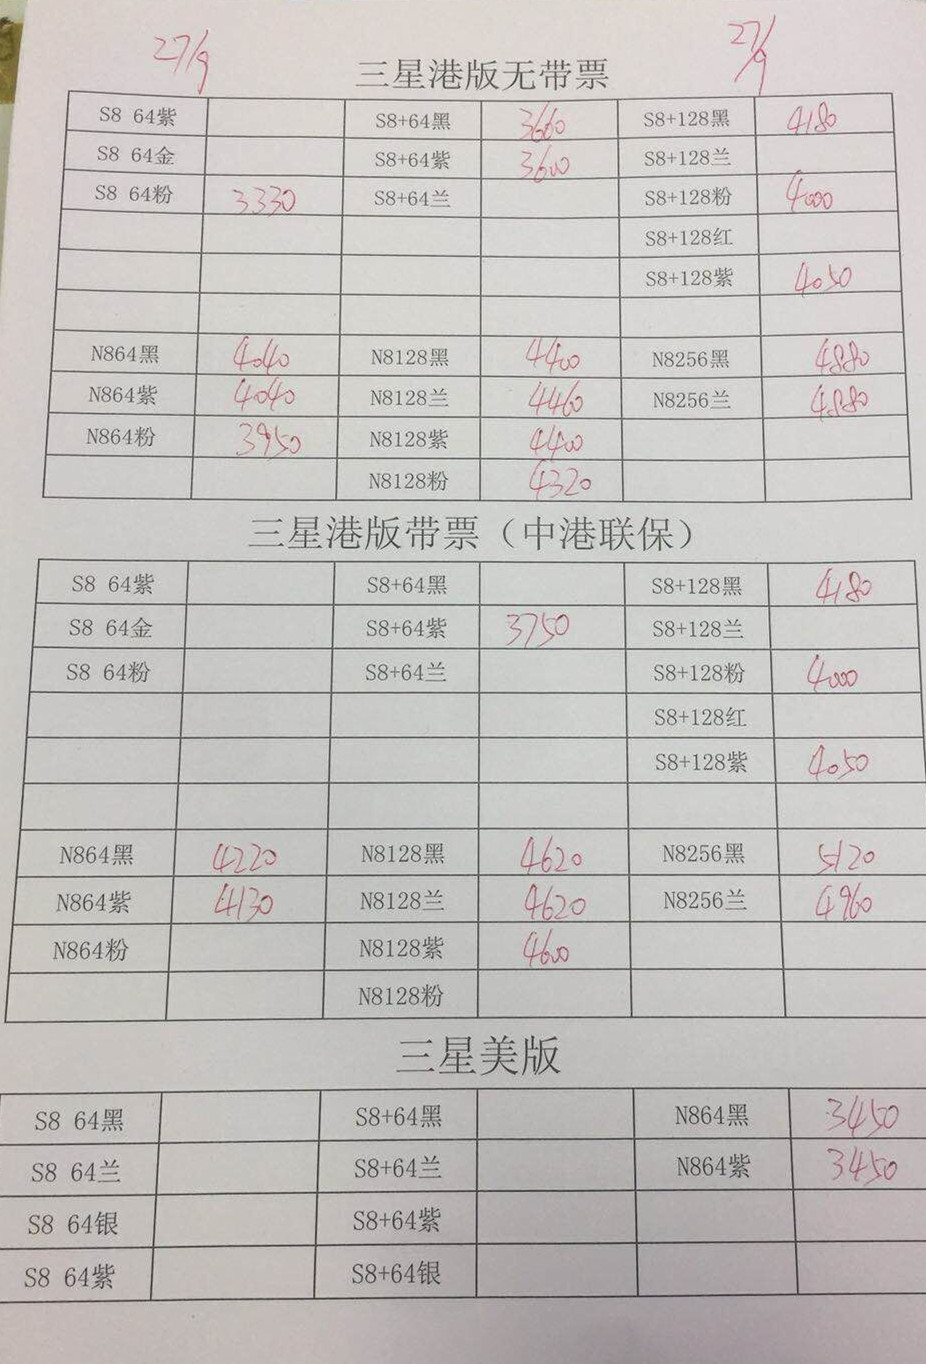 27/9 27/9
三星港版无带票
S8 64紫 S8+64黑 3660 S8+128黑 4180
S8 64金 S8+64紫 3600 S8+128兰
S8 64粉 3330 S8+64兰 S8+128粉 4000
S8+128红
S8+128紫 4050
N864黑 4040 N8128黑 4400 N8256黑 4880
N864紫 4040 N8128兰 4460 N8256兰 4880
N864粉 3950 N8128紫 4400
N8128粉 4320
三星港版带票（中港联保）
S8 64紫 S8+64黑 S8+128黑 4180
S8 64金 S8+64紫 3750 S8+128兰
S8 64粉 S8+64兰 S8+128粉 4000
S8+128红
S8+128紫 4050
N864黑 4220 N8128黑 4620 N8256黑 5120
N864紫 4130 N8128兰 4620 N8256兰 4960
N864粉 N8128紫 4600
N8128粉
三星美版
S8 64黑 S8+64黑 N864黑 3450
S8 64兰 S8+64兰 N864紫 3450
S8 64银 S8+64紫
S8 64紫 S8+64银